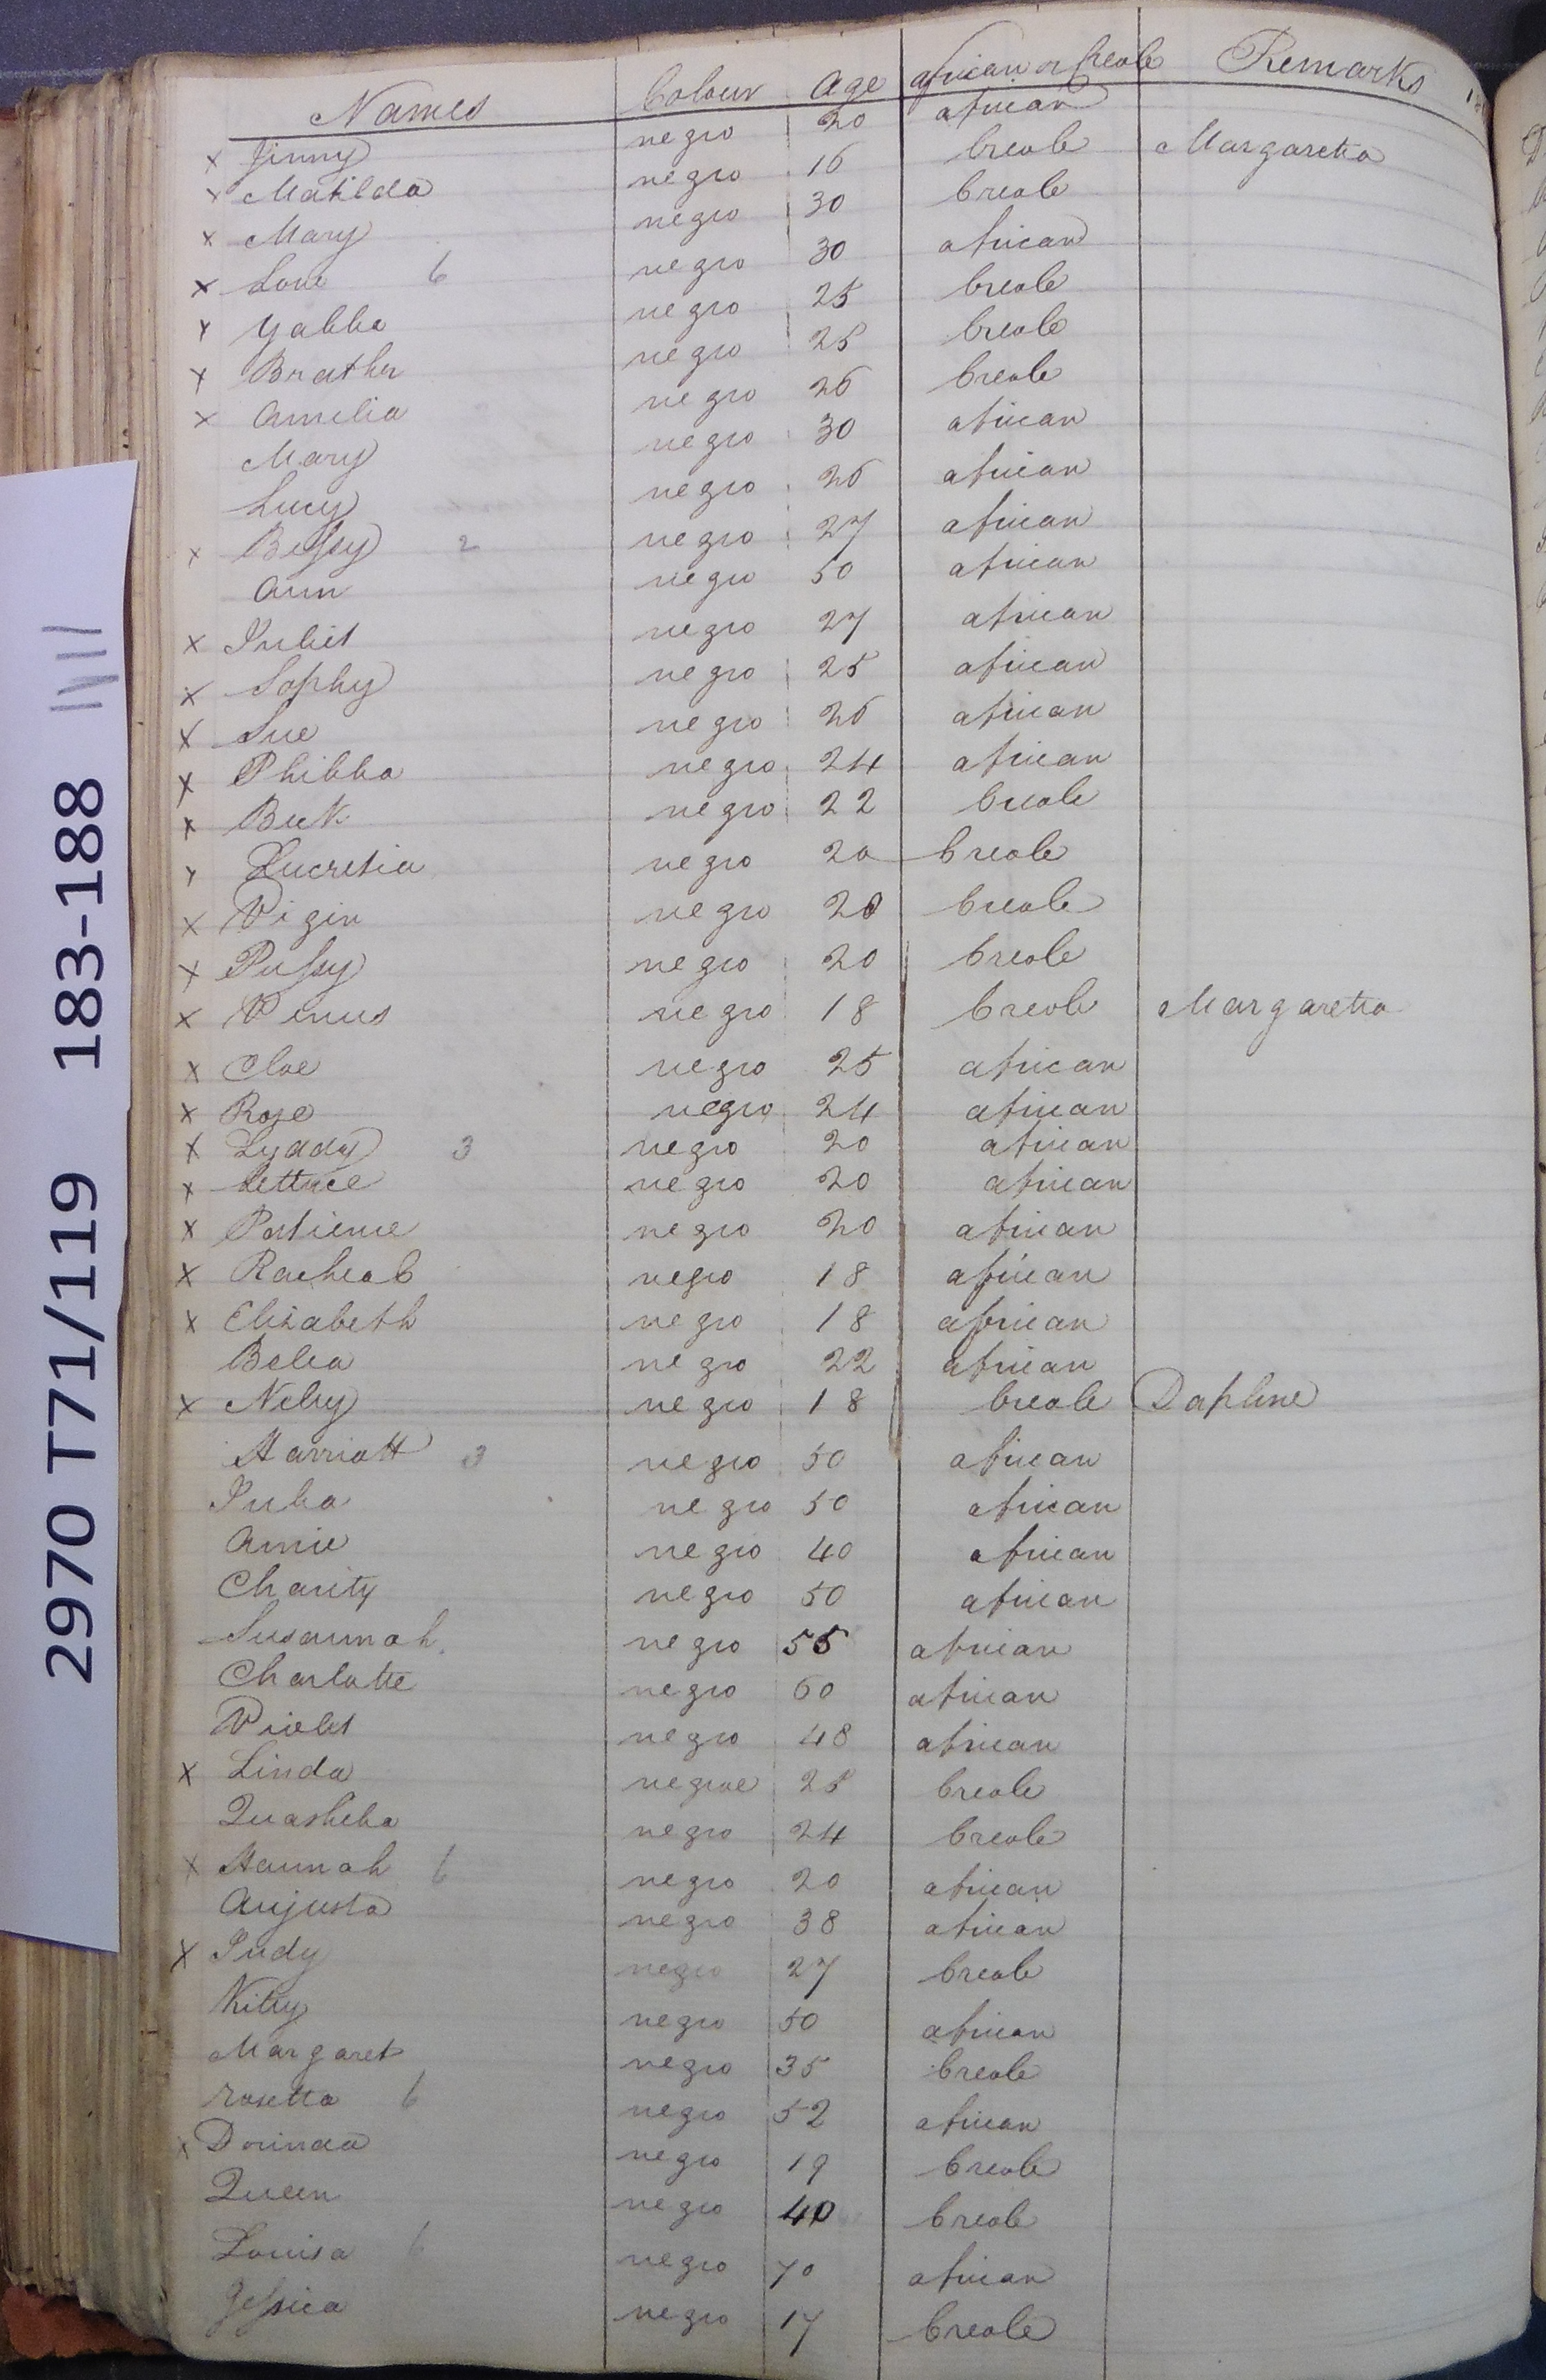 Names Colour Age african or Creole Remarks
x Jinny negro 20 african
x Matilda negro 16 Creole Margaretta
x Mary negro 30 Creole
x Love 6 negro 30 african
x Yabba negro 25 Creole
x Brather negro 25 Creole
x Amelia negro 26 Creole
Mary negro 30 african
Lucy negro 26 african
x Bessy 2 negro 27 african
Ann negro 50 african
x Juliet negro 27 african
x Sophy negro 25 african
x Sue negro 26 african
x Phibba negro 24 african
x Beck negro 22 Creole
x Lucretia negro 20 Creole
x Vigin negro 20 Creole
x Pussy negro 20 Creole
x Venus negro 18 Creole Margaretta
x Cloe negro 25 african
x Rose negro 24 african
x Lydday 3 negro 20 african
x Lettuce negro 20 african
x Patience negro 20 african
x Racheal negro 18 african
x Elizabeth negro 18 african
Belia negro 22 african
x Nelly negro 18 Creole Daphne
Harriott 3 negro 50 african
Juba negro 50 african
Amie negro 40 african
Charity negro 50 african
Susannah negro 55 african
Charlotte negro 60 african
Violet negro 48 african
x Linda negroe 25 Creole
Quasheba negro 24 Creole
x Hannah 6 negro 20 african
Augusta negro 38 african
x Judy negro 27 Creole
Kitty negro 50 african
Margaret negro 35 Creole
Rosetta 6 negro 52 african
x Dorinda negro 19 Creole
Queen negro 40 Creole
Louisa 6 negro 70 african
Jessica negro 17 Creole
2970 T71/119 183-188